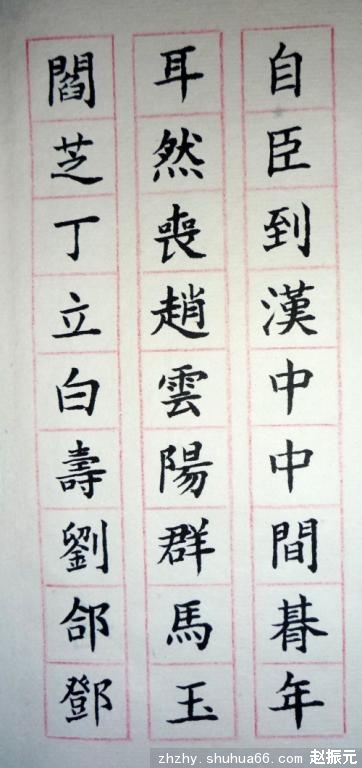 自臣到漢中中間朞年
耳然喪趙雲陽群馬玉
閻芝丁立白壽劉郃鄧
zhzhy.shuhua66.com 赵振元